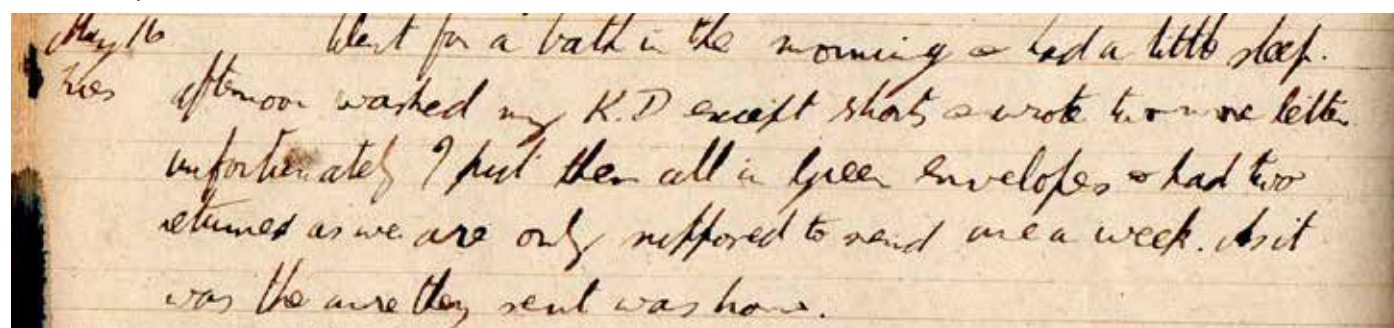 May 16 Went for a bath in the morning & had a little sleep.
Tues afternoon washed my K.D except shorts & wrote two more letter
unfortunately I put them all in Green envelopes & had two
returned as we are only supposed to send one a week. As it
was the one they sent was home.